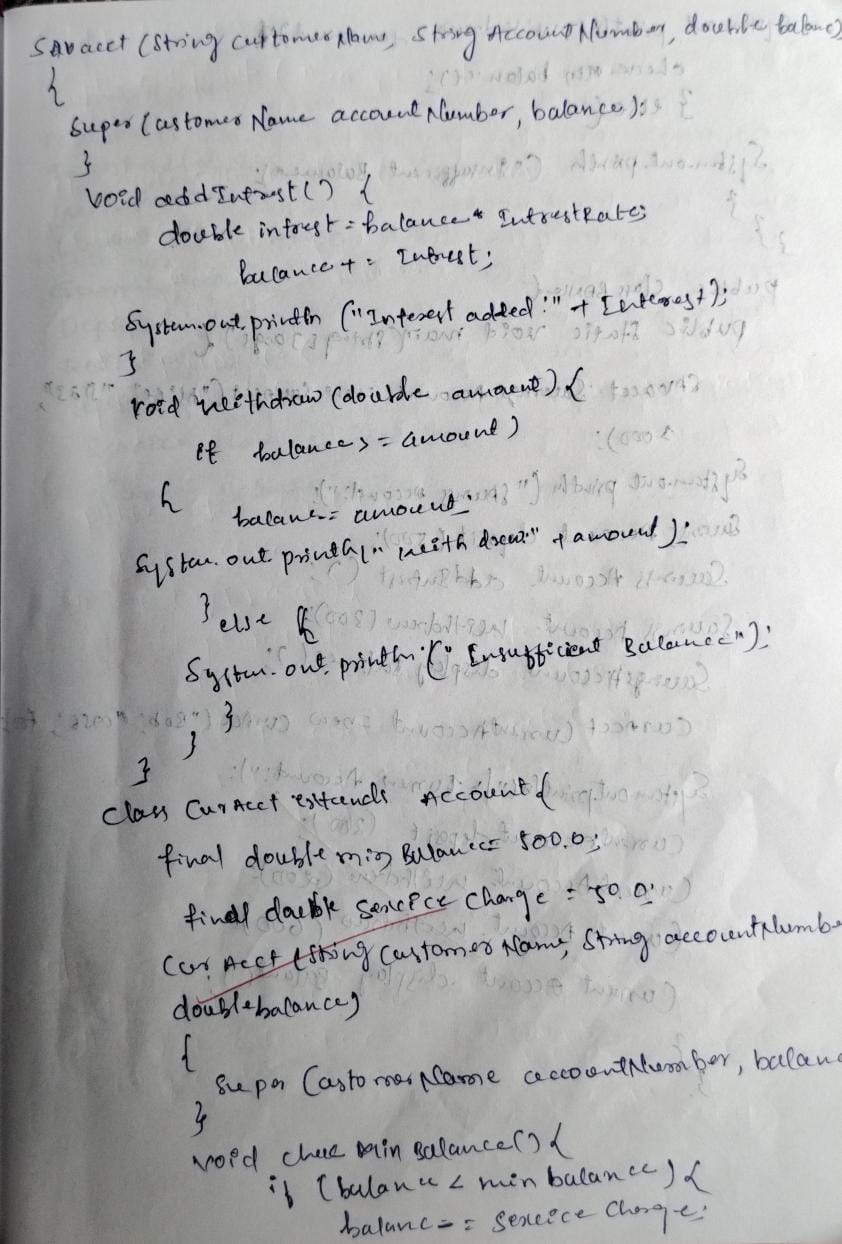 SAVacct (String customerName, String AccountNumber, double balance)
{
Super (customerName accountNumber, balance);
}
void addIntrest() {
double intrest = balance * IntrestRate;
balance + = Intrest;
System.out.println ("Interest added:" + Interest);
}
void withdraw (double amount) {
if balance > = amount )
{
balance - = amount;
System.out.println(" withdrew:" + amount );
} else {
System.out.println(" Insufficient Balance");
}
}
}
class CurAcct extends Account {
final double min Balance = 500.0;
final double service charge = 50.0;
Cur Acct (String customerName, String accountNumbe
double balance)
{
Super (customerName accountNumber, balan
}
void chec min Balance() {
if (balance < min balance) {
balance - = service charge;